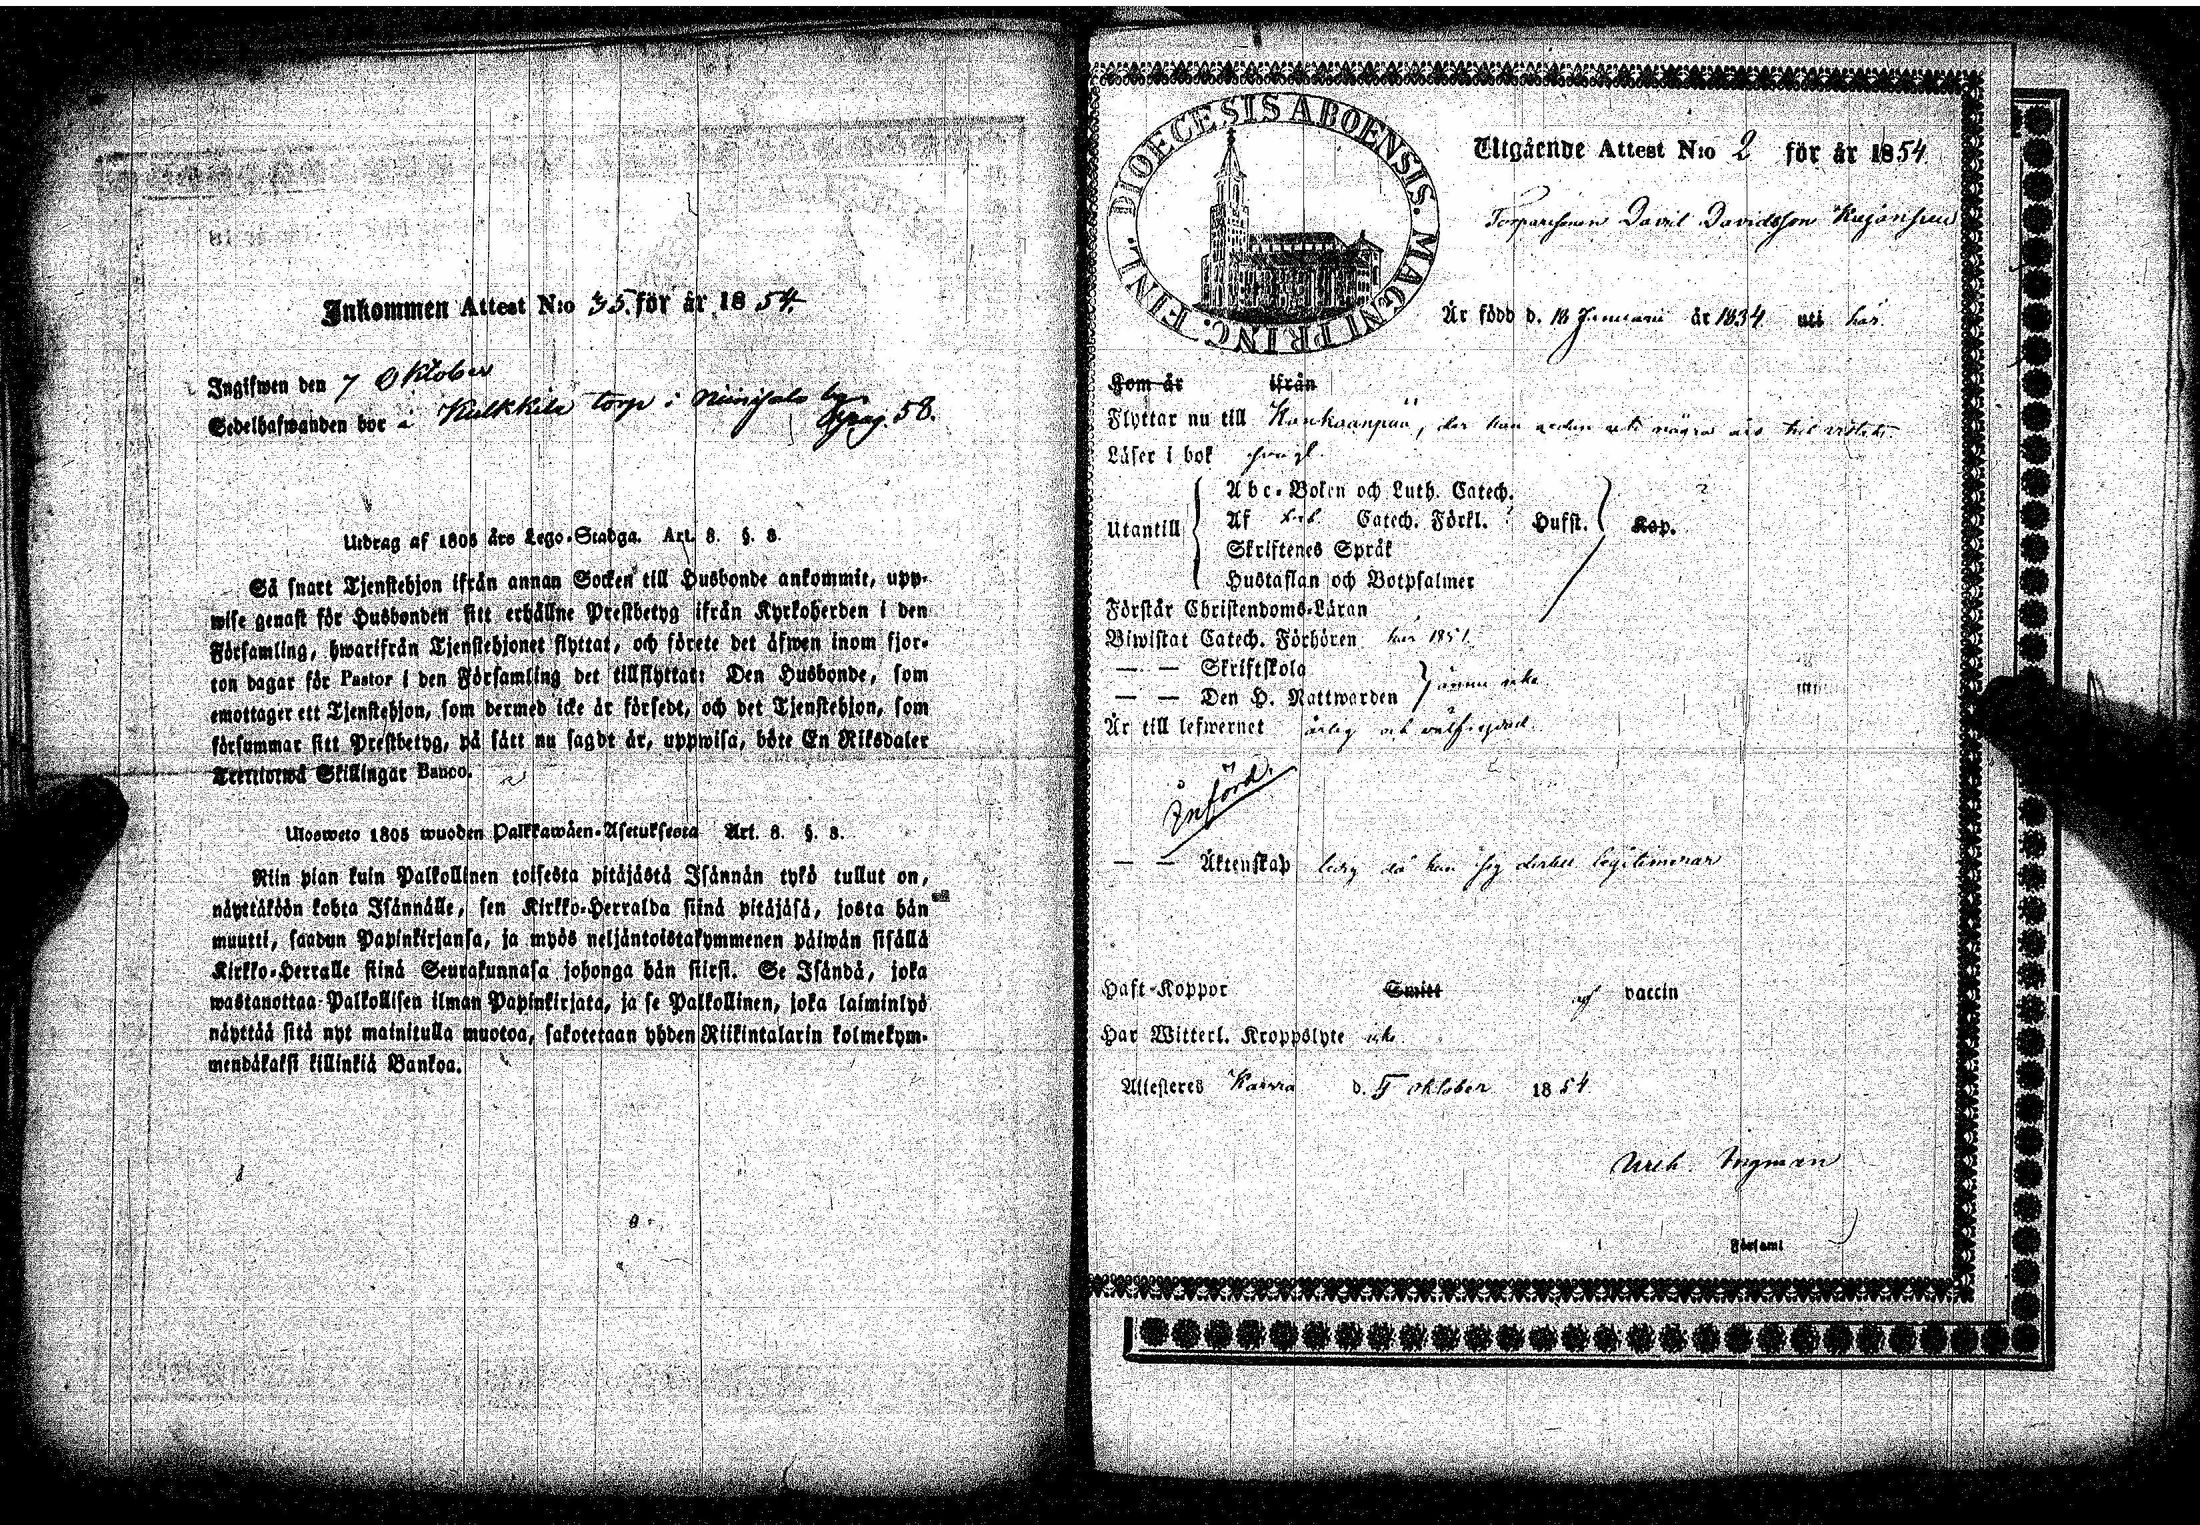 Inkommen Attest N:o 35. för år 1854.
Ingifwen den 7 Oktober
Sedelhafwanden bor å Kulkkila torp i Niinisalo by
pag. 58.
Utdrag af 1805 års Lego-Stadga. Art. 8. §. 8.
Så snart Tjenstehjon ifrån annan Socken till Husbonde ankommit, upp-
wise genast för Husbonden sitt erhållne Prestbetyg ifrån Kyrkoherden i den
Församling, hwarifrån Tjenstehjonet flyttat, och förete det äfwen inom fjor-
ton dagar för Pastor i den Församling det tillflyttat: Den Husbonde, som
emottager ett Tjenstehjon, som dermed icke är försedt, och det Tjenstehjon, som
försummar sitt Prestbetyg, på sätt nu sagdt är, uppwisa, böte En Riksdaler
Trettiotwå Skillingar Banco.
Ulosweto 1805 wuoden Palkkawäen-Asetuksesta Art. 8. §. 8.
Niin pian kuin Palkollinen toisesta pitäjästä Isännän tykö tullut on,
näyttäköön kohta Isännälle, sen Kirkko-Herralda siinä pitäjäsä, josta hän
muutti, saadun Papinkirjansa, ja myös neljäntoistakymmenen päiwän sisällä
Kirkko-Herralle siinä Seurakunnasa johonga hän siirsi. Se Isändä, joka
wastanottaa Palkollisen ilman Papinkirjata, ja se Palkollinen, joka laiminlyö
näyttää sitä nyt mainitulla muotoa, sakotetaan yhden Riikintalarin kolmekym-
mendäkaksi killinkiä Bankoa.
DIOECESIS ABOENSIS. MAGNI PRINC. FINL.
Utgående Attest N:o 2 för år 1854
Torparesonen David Davidsson Kujanpää
Är född d. 18 Januarii år 1834 uti här.
Kom år ifrån
Flyttar nu till Kankaanpää, der han redan uti några års tid vistats.
Läser i bok
Utantill
Abc-Boken och Luth. Catech.
Af Catech. Förkl. Hufst. Kap.
Skriftenes Språk
Hustaflan och Botpsalmer
Förstår Christendoms-Läran
Biwistat Catech. Förhören här 1851.
— — Skriftskola
— — Den H. Nattwarden ännu icke
Är till lefwernet ärlig och wälfrejdad.
Införd.
— — Äktenskap ledig då han sig derhell legitimerar
Haft-Koppor Smitt af vaccin
Har Witterl. Kroppslyte icke.
Attesteres Karvia d. 5 oktober 1854
Wilh. Ingman
i Församl